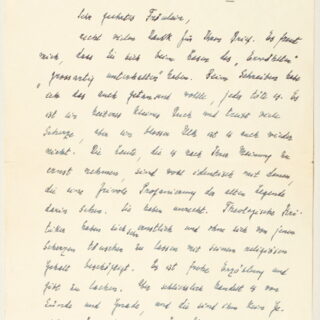 Sehr geehrtes Fräulein,
recht vielen Dank für Ihren Brief. Es freut
mich, dass Sie sich beim Lesen des „Erwählten"
„grossartig unterhalten" haben. Beim Schreiben habe
ich das auch getan und wollte, jeder täte es. Es
ist ein heiteres kleines Buch und treibt viele
Scherze, aber ein blosser Ulk ist es auch wieder
nicht. Die Leute, die es nach Ihrer Meinung zu
ernst nehmen, sind wohl identisch mit denen,
die eine frivole Profanierung der alten Legende
darin sehen. Sie haben unrecht. Theologische Kri-
tiker haben sich ernstlich und ohne sich von jenen
Scherzen täuschen zu lassen mit seinem religiösen
Gehalt beschäftigt. Es ist frohe Erzählung und
gibt zu lachen. Aber schliesslich handelt es von
Sünde und Gnade, und die sind kein